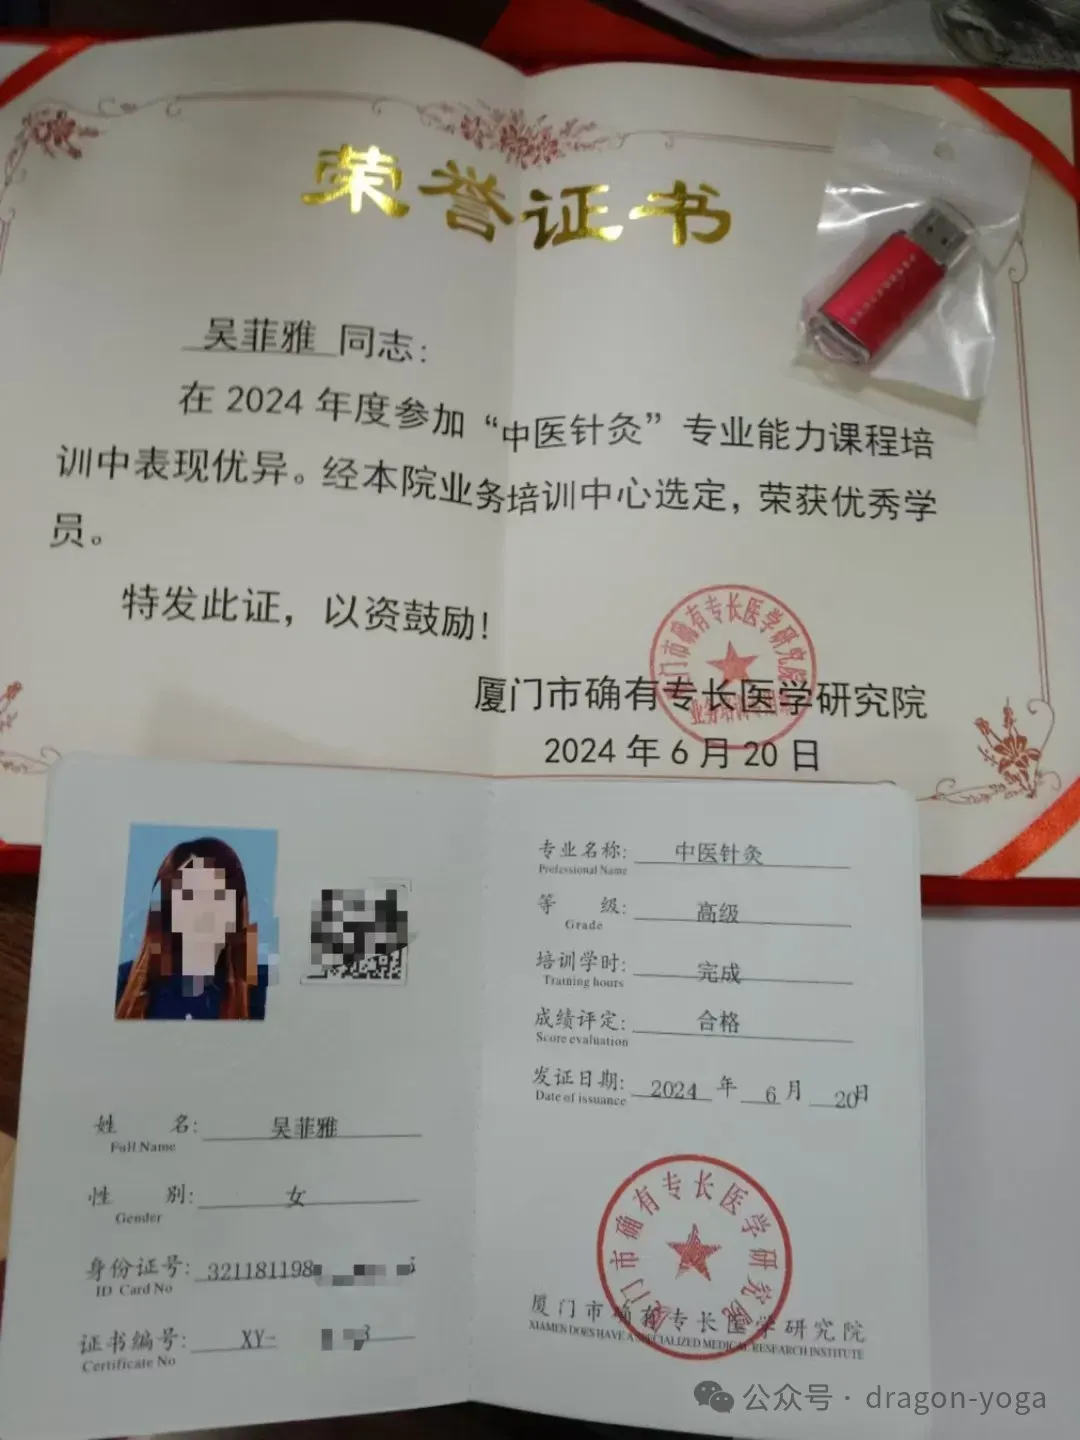 荣誉证书
吴菲雅 同志：
在 2024 年度参加“中医针灸”专业能力课程培
训中表现优异。经本院业务培训中心选定，荣获优秀学
员。
特发此证，以资鼓励！
厦门市确有专长医学研究院
厦门市确有专长医学研究院
2024 年 6 月 20 日
姓 名: 吴菲雅
Full Name
性 别: 女
Gender
身份证号: 321181198
ID Card No
证书编号: XY-
Certificate No
专业名称: 中医针灸
Professional Name
等 级: 高级
Grade
培训学时: 完成
Training hours
成绩评定: 合格
Score evaluation
发证日期: 2024 年 6 月 20 日
Date of issuance
厦门市确有专长医学研究院
厦门市确有专长医学研究院
XIAMEN DOES HAVE A SPECIALIZED MEDICAL RESEARCH INSTITUTE
公众号 · dragon-yoga